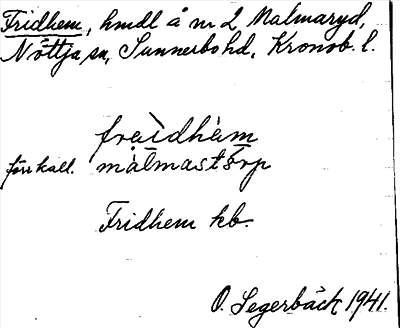 Fridhem, hmdl å nr 2 Malmaryd,
Nöttja sn, Sunnerbo hd, Kronob. l.
fraìdhàm
förr kall. màlmastörp
Fridhem kb.
O. Segerbäck 1941.